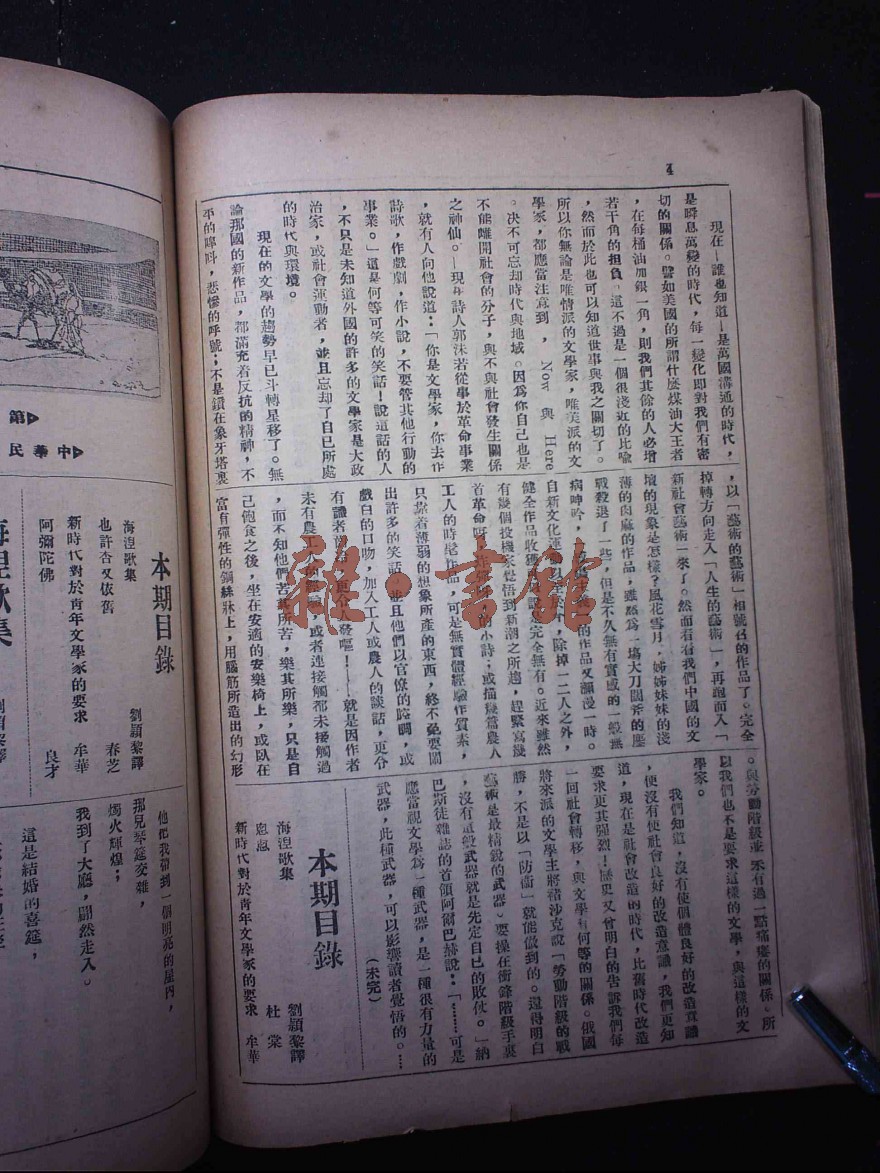 4
現在—誰也知道—是萬國溝通的時代，
是瞬息萬變的時代，每一變化即對我們有密
切的關係。譬如美國的所謂什麼煤油大王者
，在每桶油加銀一角，則我們其餘的人必增
若干角的担負。這不過是一個很淺近的比喻
，然而於此也可以知道世事與我之關切了。
所以你無論是唯情派的文學家，唯美派的文
學家，都應當注意到，Now 與 Here
。決不可忘却時代與地域。因為你自己也是
不能離開社會的分子，與不與社會發生關係
之神仙。—現年詩人郭沫若從事於革命事業
，就有人向他說道：「你是文學家，你去作
詩歌，作戲劇，作小說，不要管其他行動的
事業。」這是何等可笑的笑話！說這話的人
，不只是未知道外國的許多的文學家是大政
治家，或社會運動者，並且忘却了自已所處
的時代與環境。
現在的文學的趨勢早已斗轉星移了。無
論那國的新作品，都滿充着反抗的精神，不
平的嘑呌，悲慘的呼號；不是鑽在象牙塔裏
，以「藝術的藝術」相號召的作品了。完全
掉轉方向走入「人生的藝術」，再跑而入「
新社會藝術」來了。然而看看我們中國的文
壇的現象是怎樣？風花雪月，姊姊妹妹的淺
薄的肉麻的作品，雖然為一塲大刀闊斧的鏖
戰殺退了一些，但是不久無有實感的一般無
病呻吟，的作品又瀰漫一時。
自新文化運動以至於，除掉一二人之外，
健全作品收獲，完全無有。近來雖然
有幾個投機家覺悟到新潮之所趨，趕緊寫幾
首革命呀！的小詩；或描幾篇農人
工人的時髦作品，可是無實體經驗作質素，
只靠着薄弱的想象所產的東西，終不免要鬧
出許多的笑話。並且他們以官僚的腔調，或
戲白的口吻，加入工人或農人的談話，更令
有識者，更令人發嘔！—就是因作者
未有農工人的，或者連接觸都未接觸過
，而不知他們苦其所苦，樂其所樂，只是自
己飽食之後，坐在安適的安樂椅上，或臥在
富有彈性的鋼絲牀上，用腦筋所造出的幻形
。與勞動階級並未有過一點痛癢的關係。所
以我們也不是要求這樣的文學，與這樣的文
學家。
我們知道，沒有使個體良好的改造意識
，使沒有使社會良好的改造意識，我們更知
道，現在是社會改造的時代，比舊時代改造
要求更其强烈！歷史又曾明白的告訴我們每
一回社會轉移，與文學有何等的關係。俄國
將來派的文學主將褚沙克說「勞動階級的戰
勝，不是以「防衛」就能做到的。還得明白
藝術是最精銳的武器。要操在衝鋒階級手裏
，沒有這般武器就是先定自已的敗仗。」納
巴斯徒雜誌的首領阿爾巴赫說：「……可是
應當視文學為一種武器，是一種很有力量的
武器，此種武器，可以影響讀者覺悟的。……
（未完）
本期目錄
海涅歌集　劉穎黎譯
　杜棠
新時代對於青年文學家的要求　牟華
第
中華民
海涅歌集
劉穎黎譯
本期目錄
海涅歌集　劉穎黎譯
也許杏又依舊　春芝
新時代對於青年文學家的要求　牟華
阿彌陀佛　良才
他把我帶到一個明亮的屋內，
那兒琴筵交雜，
燭火輝煌；
我到了大廳，翩然走入。
這是結婚的喜筵，